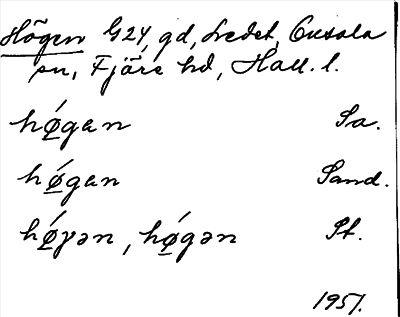 Högen G24, gd, Ledet, Onsala
sn, Fjäre hd, Hall. l.
hǿ̲gan Sa.
hǿ̲gan Sand.
hǿ̲γən, hǿ̲gən St.
1951.